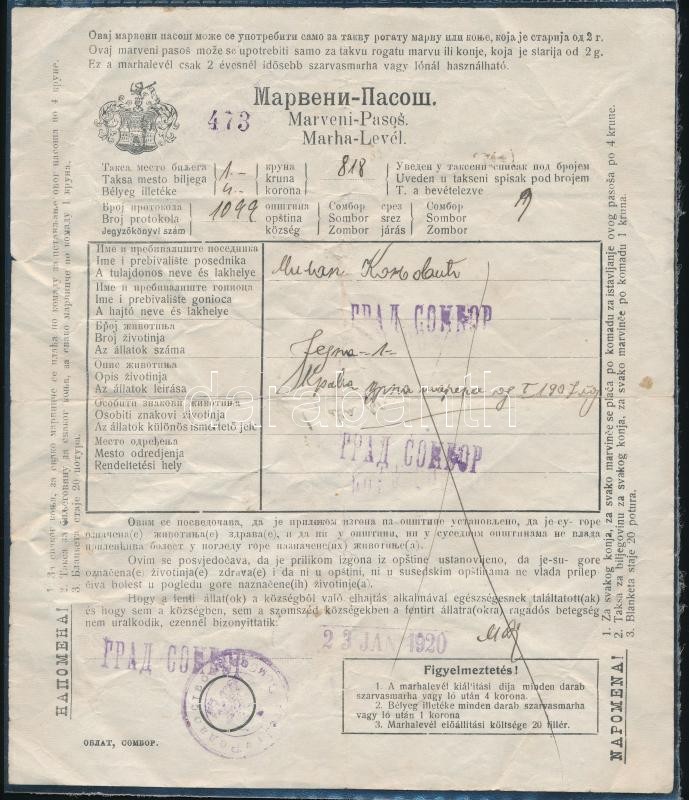 Овај марвени пасош може се употребити само за такву рогату марву или коње, која је старија од 2 г.
Ovaj marveni pasoš može se upotrebiti samo za takvu rogatu marvu ili konje, koja je starija od 2 g.
Ez a marhalevél csak 2 évesnél idősebb szarvasmarha vagy lónál használható.
473
Марвени-Пасош.
Marveni-Pasoš.
Marha-Levél.
Такса место биљега
Taksa mesto biljega
Bélyeg illetéke
1.-
4.-
круна
kruna
korona
818
Уведен у таксени списак под бројем
Uveden u takseni spisak pod brojem
T. a bevételezve
Број протокола
Broj protokola
Jegyzőkönyvi szám
1099
општина
opština
község
Сомбор
Sombor
Zombor
срез
srez
járás
Сомбор
Sombor
Zombor
9
Име и пребивалиште поседника
Ime i prebivalište posednika
A tulajdonos neve és lakhelye
Милан Коњовић
Име и пребивалиште гониоца
Ime i prebivalište gonioca
A hajtó neve és lakhelye
ГРАД СОМБОР
Број животиња
Broj životinja
Az állatok száma
Једна -1-
Опис животиња
Opis životinja
Az állatok leirása
Крава црна шарена од 1907 год
Особити знакови животиња
Osobiti znakovi životinja
Az állatok különös ismertető jele
Место одређења
Mesto odredjenja
Rendeltetési hely
ГРАД СОМБОР
Овим се посведочава, да је приликом изгона из општине установљено, да је-су горе
означена(е) животиња(е) здрава(е), и да ни у општини, ни у суседним општинама не влада
прилепчива болест у погледу горе назначене(их) животиње(а).
Ovim se posvedočava, da je prilikom izgona iz opštine ustanovljeno, da je-su gore
označena(e) životinja(e) zdrava(e) i da ni u opštini, ni u susedskim opštinama ne vlada prilep-
čiva bolest u pogledu gore naznačene(ih) životinje(a).
Hogy a fenti állat(ok) a községből való elhajtás alkalmával egészségesnek találtatott(ak)
és hogy sem a községben, sem a szomszéd községekben a fentirt állatra(okra) ragadós betegség
nem uralkodik, ezennel bizonyittatik:
23 JAN 1920
ГРАД СОМБОР
Figyelmeztetés!
1. A marhalevél kiállitási dija minden darab
szarvasmarha vagy ló után 4 korona.
2. Bélyeg illetéke minden darab szarvasmarha
vagy ló után 1 korona
3. Marhalevél előállitási költsége 20 fillér.
ОБЛАТ, СОМБОР.
НАПОМЕНА!
2. Такса за биљеговину за сваког коња, за свако марвинче по комаду 1 круна.
3. Бланкета стаје 20 потура.
NAPOMENA!
1. Za svakog konja, za svako marvinče se plaća po komadu za istavljanje ovog pasoša po 4 krune.
2. Taksa za biljegovinu za svakog konja, za svako marvinče po komadu 1 kruna.
3. Blanketa staje 20 potura.
darabanth